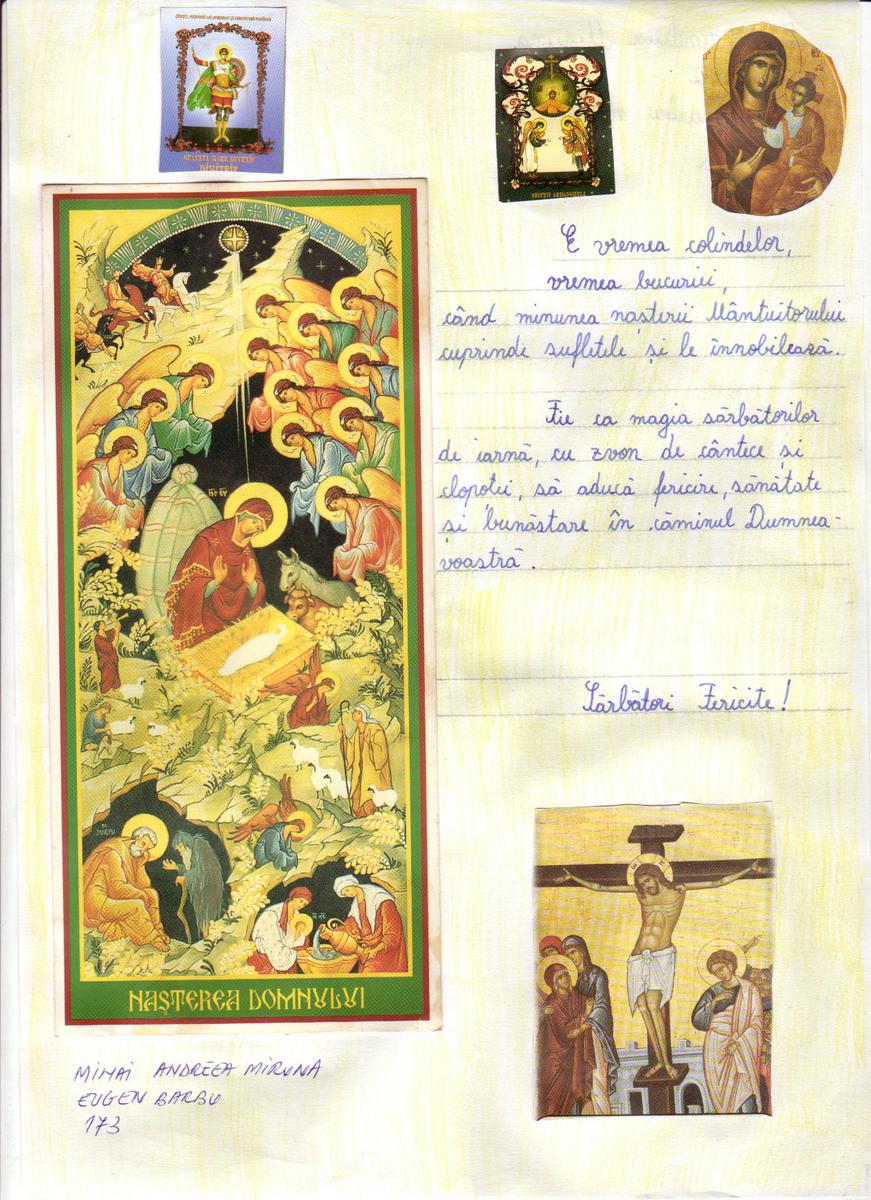 SFÂNTUL MARE MUCENIC
DIMITRIE
SFINȚII ARHANGHELI
E vremea colindelor,
vremea bucuriei,
când minunea nașterii Mântuitorului
cuprinde sufletele și le înnobilează.
Fie ca magia sărbătorilor
de iarnă, cu zvon de cântece și
clopoței, să aducă fericire, sănătate
și bunăstare în căminul Dumnea-
voastră.
Sărbători Fericite!
NAȘTEREA DOMNULUI
MIHAI ANDREEA MIRUNA
EUGEN BARBU
173